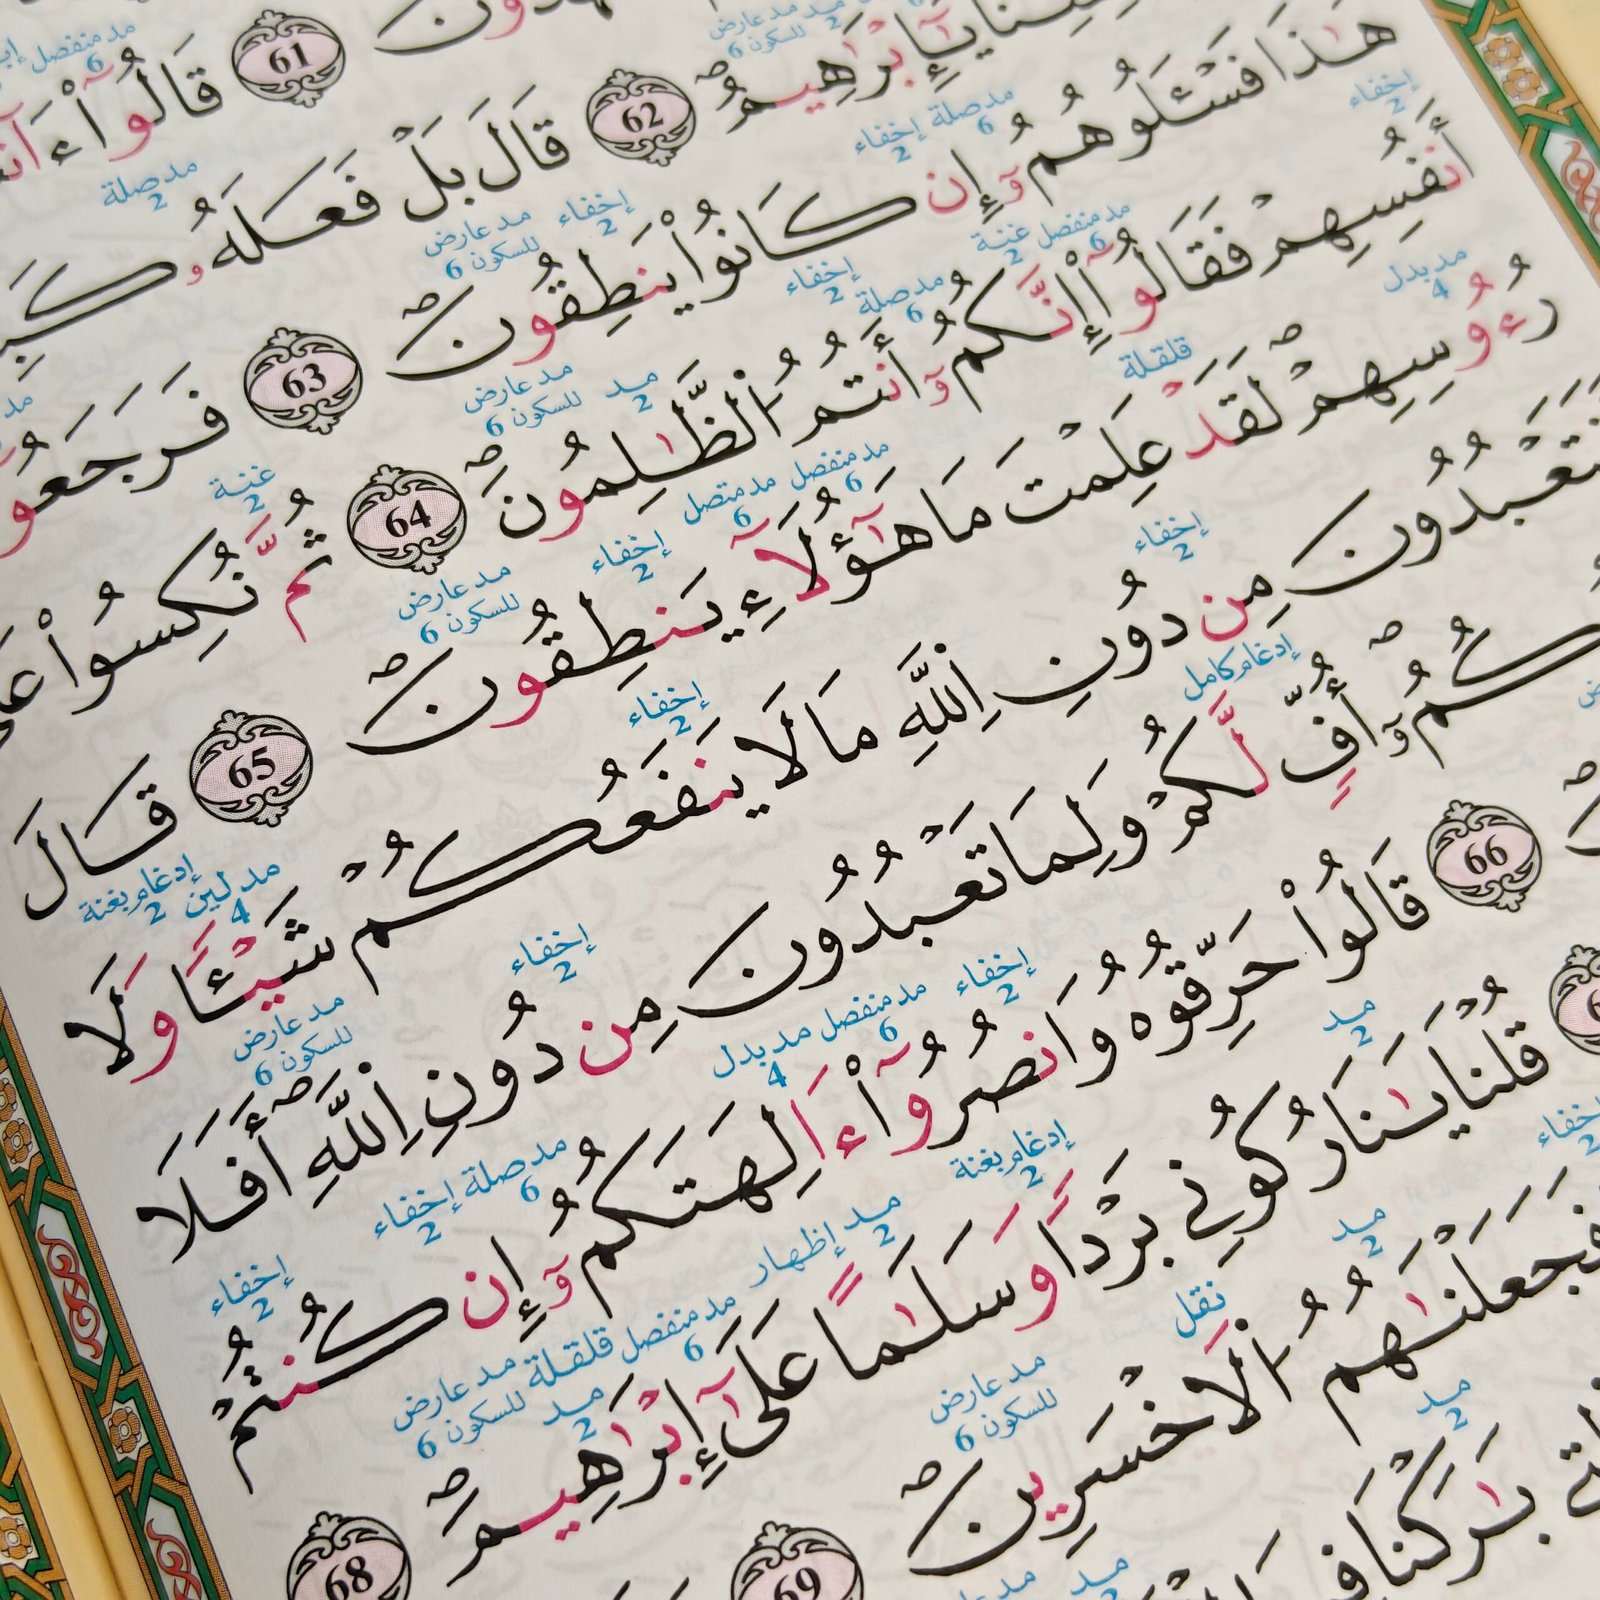 61 قَالُوٓاْ ءَا۬نتَ
مد عارض للسكون 6
يَٰٓإِبْرَٰهِيمُ 62 قَالَ بَلْ فَعَلَهُۥ
إخفاء 2 مد صلة 6 إخفاء 2 مد عارض للسكون 6
هَٰذَا فَسْـَٔلُوهُمُۥٓ إِن كَانُواْ يَنطِقُونَ 63 فَرَجَعُو
إخفاء 2 مد منفصل 6 غنة 2 مد صلة 6 إخفاء 2 مد 2 مد عارض للسكون 6 غنة 2
أَنفُسِهِمْ فَقَالُوٓاْ إِنَّكُمُۥٓ أَنتُمُ ٱلظَّٰلِمُونَ 64 ثُمَّ نُكِسُواْ عَلَ
مد بدل 4 قلقلة مد منفصل 6 مد متصل 6 إخفاء 2 مد عارض للسكون 6
رُءُوسِهِمْ لَقَدْ عَلِمْتَ مَا هَٰٓؤُلَآءِ يَنطِقُونَ 65 قَالَ
إخفاء 2 إخفاء 2 مد لين 4 إدغام بغنة 2
تَعْبُدُونَ مِن دُونِ ٱللَّهِ مَا لَا يَنفَعُكُمْ شَيْـًٔا وَلَا
إدغام كامل إخفاء 2 مد عارض للسكون 6
كُمُۥٓ أُفٍّ لَّكُمْ وَلِمَا تَعْبُدُونَ مِن دُونِ ٱللَّهِ أَفَلَا
إخفاء 2 مد منفصل 6 مد بدل 4 مد صلة 6 إخفاء 2 إخفاء 2
66 قَالُواْ حَرِّقُوهُ وَانصُرُوٓاْ ءَالِهَتَكُمُۥٓ إِن كُنتُمْ
مد 2 إدغام بغنة 2 مد 2 إظهار مد منفصل 6 قلقلة مد 2 مد عارض للسكون 6
قُلْنَا يَٰنَارُ كُونِي بَرْدًا وَسَلَٰمًا عَلَىٰٓ إِبْرَٰهِيمَ 68
إخفاء 2 مد 2 نقل مد عارض للسكون 6
فَجَعَلْنَٰهُمُ ٱلَاخْسَرِينَ 69
مد 2 مد 2
بَٰرَكْنَا